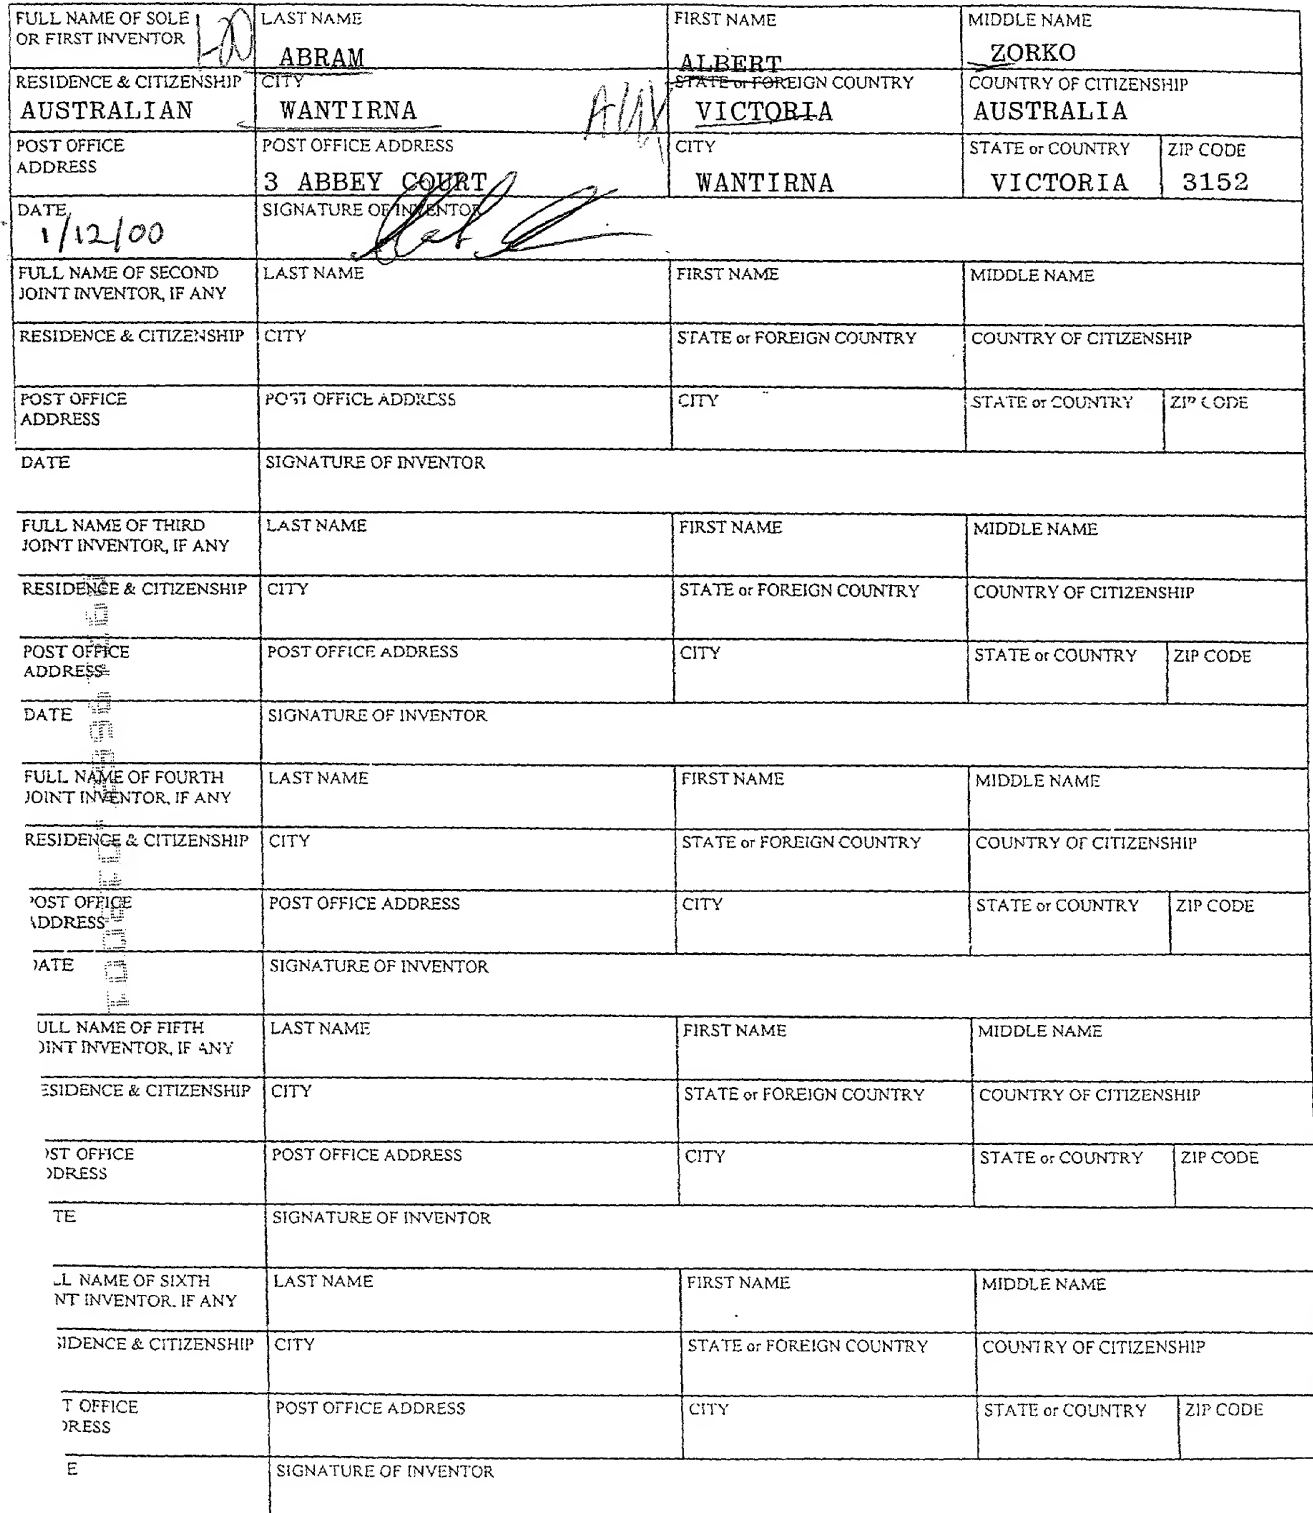 FULL NAME OF SOLE OR FIRST INVENTOR 1-00 LAST NAME ABRAM FIRST NAME ALBERT MIDDLE NAME ZORKO
RESIDENCE & CITIZENSHIP AUSTRALIAN CITY WANTIRNA STATE or FOREIGN COUNTRY AUX VICTORIA COUNTRY OF CITIZENSHIP AUSTRALIA
POST OFFICE ADDRESS POST OFFICE ADDRESS 3 ABBEY COURT CITY WANTIRNA STATE or COUNTRY VICTORIA ZIP CODE 3152
DATE 1/12/00 SIGNATURE OF INVENTOR
FULL NAME OF SECOND JOINT INVENTOR, IF ANY LAST NAME FIRST NAME MIDDLE NAME
RESIDENCE & CITIZENSHIP CITY STATE or FOREIGN COUNTRY COUNTRY OF CITIZENSHIP
POST OFFICE ADDRESS POST OFFICE ADDRESS CITY STATE or COUNTRY ZIP CODE
DATE SIGNATURE OF INVENTOR
FULL NAME OF THIRD JOINT INVENTOR, IF ANY LAST NAME FIRST NAME MIDDLE NAME
RESIDENCE & CITIZENSHIP CITY STATE or FOREIGN COUNTRY COUNTRY OF CITIZENSHIP
POST OFFICE ADDRESS POST OFFICE ADDRESS CITY STATE or COUNTRY ZIP CODE
DATE SIGNATURE OF INVENTOR
FULL NAME OF FOURTH JOINT INVENTOR, IF ANY LAST NAME FIRST NAME MIDDLE NAME
RESIDENCE & CITIZENSHIP CITY STATE or FOREIGN COUNTRY COUNTRY OF CITIZENSHIP
POST OFFICE ADDRESS POST OFFICE ADDRESS CITY STATE or COUNTRY ZIP CODE
DATE SIGNATURE OF INVENTOR
ULL NAME OF FIFTH OINT INVENTOR, IF ANY LAST NAME FIRST NAME MIDDLE NAME
ESIDENCE & CITIZENSHIP CITY STATE or FOREIGN COUNTRY COUNTRY OF CITIZENSHIP
OST OFFICE DDRESS POST OFFICE ADDRESS CITY STATE or COUNTRY ZIP CODE
TE SIGNATURE OF INVENTOR
LL NAME OF SIXTH NT INVENTOR. IF ANY LAST NAME FIRST NAME MIDDLE NAME
SIDENCE & CITIZENSHIP CITY STATE or FOREIGN COUNTRY COUNTRY OF CITIZENSHIP
T OFFICE DRESS POST OFFICE ADDRESS CITY STATE or COUNTRY ZIP CODE
E SIGNATURE OF INVENTOR